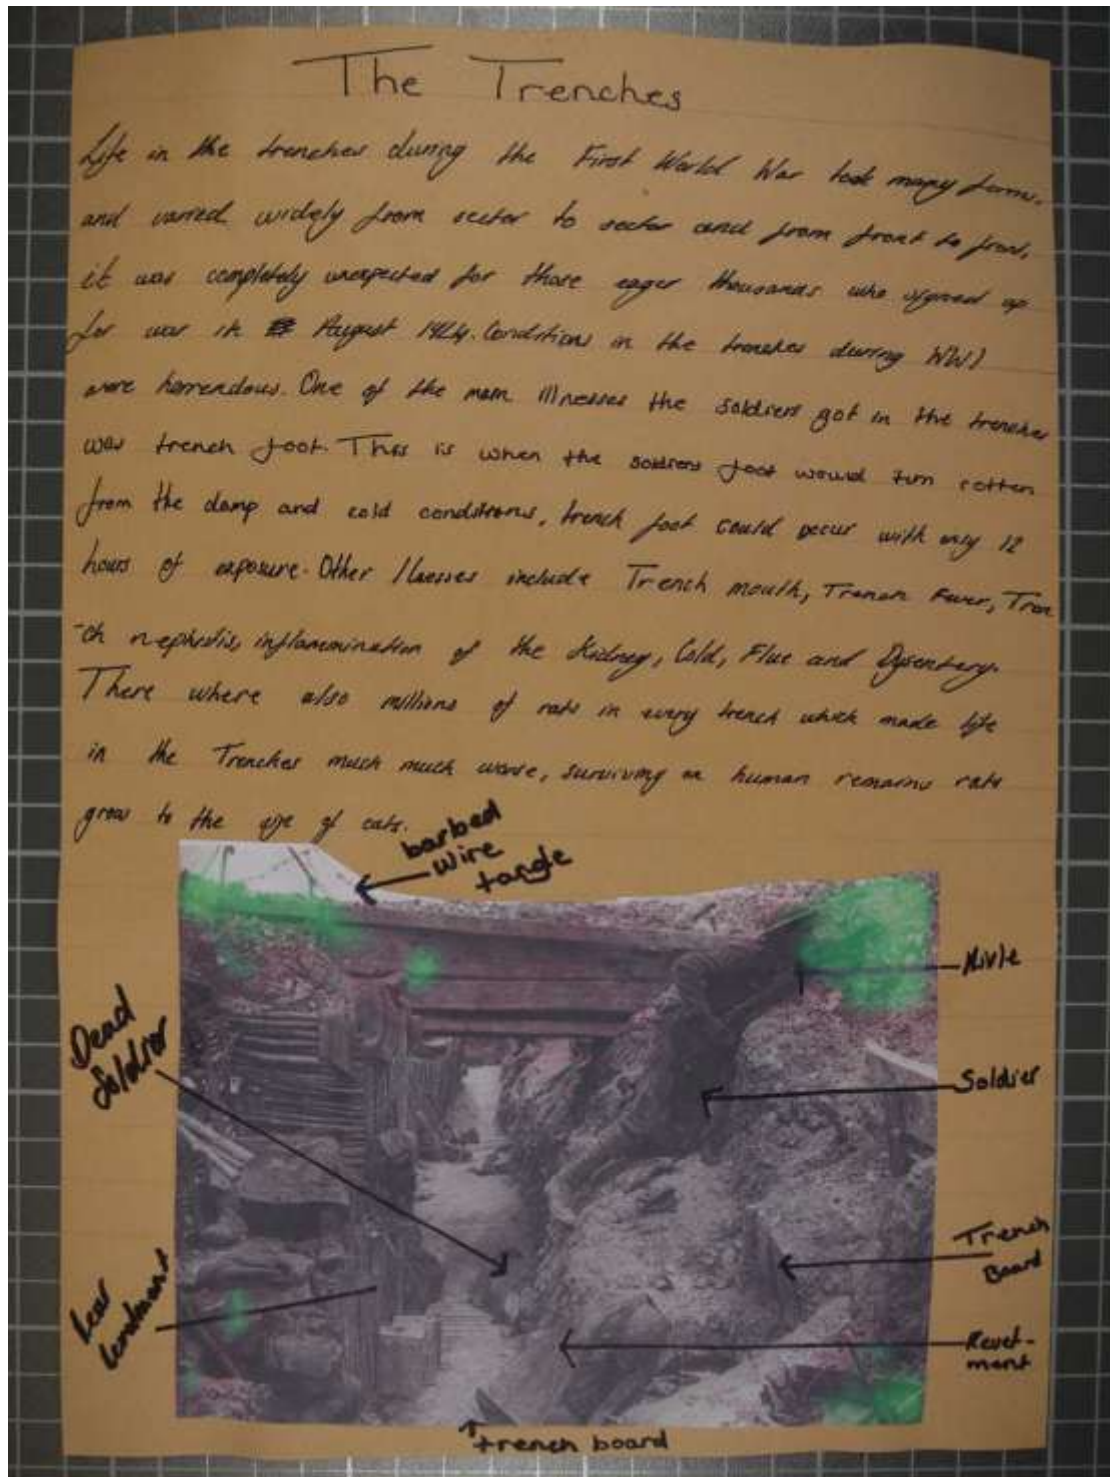 The Trenches
Life in the trenches during the First World War took many forms,
and varied widely from sector to sector and from front to front,
it was completely unexpected for those eager thousands who signed up
for war in August 1914. Conditions in the trenches during WW1
were horrendous. One of the main illnesses the soldiers got in the trenches
was trench foot. This is when the soldiers foot would turn rotten
from the damp and cold conditions, trench foot could occur with only 12
hours of exposure. Other Ilnesses include Trench mouth, Trench Fever, Tren
-ch nephritis, inflammination of the Kidney, Cold, Flue and Dysentery.
There where also millions of rats in every trench which made life
in the Trenches much much worse, surviving on human remains rats
grew to the size of cats.
barbed
wire
tangle
Rivle
Dead
Soldier
Soldier
Trench
Board
Rear
Revet-
ment
trench board